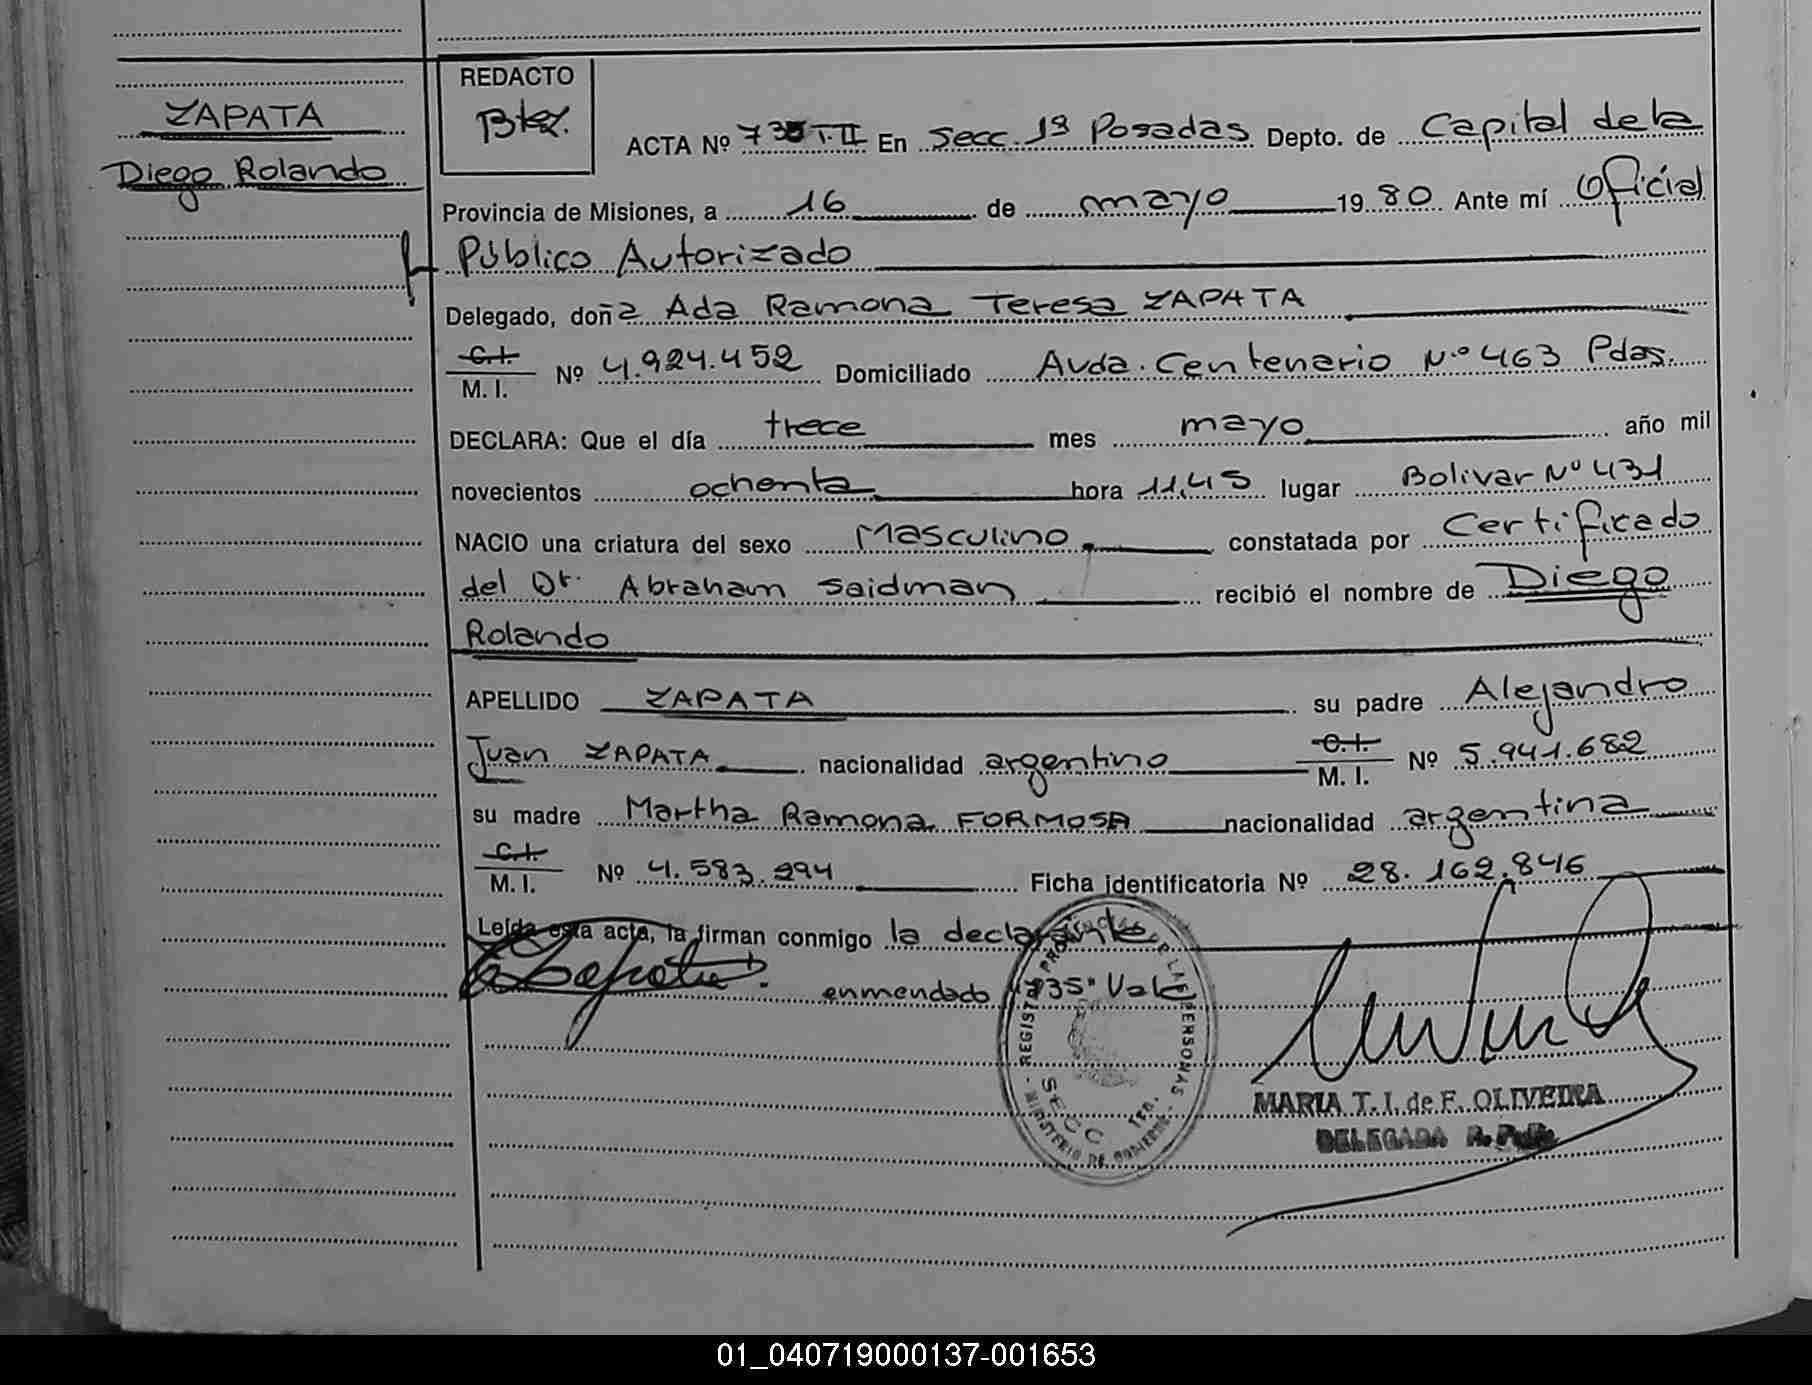 ZAPATA
Diego Rolando
REDACTO
Btez.
ACTA Nº 735 T.II En Secc. 1ª Posadas Depto. de Capital de la
Provincia de Misiones, a 16 de mayo 1980 Ante mí Oficial
Público Autorizado
Delegado, doña Ada Ramona Teresa ZAPATA
C.I.
M. I. Nº 4.924.452 Domiciliado Avda. Centenario Nº 463 Pdas.
DECLARA: Que el día trece mes mayo año mil
novecientos ochenta hora 11,45 lugar Bolivar Nº 431
NACIO una criatura del sexo Masculino constatada por Certificado
del Dr. Abraham Saidman recibió el nombre de Diego
Rolando
APELLIDO ZAPATA su padre Alejandro
Juan ZAPATA nacionalidad argentino C.I. M. I. Nº 5.941.682
su madre Martha Ramona FORMOSA nacionalidad argentina
C.I.
M. I. Nº 4.583.294 Ficha identificatoria Nº 28.162.846
Leída esta acta, la firman conmigo la declarante
enmendado "735" Vale
REGISTRO PROVINCIAL DE LAS PERSONAS
MINISTERIO DE GOBIERNO
SECC 1RA.
MARIA T. I. de F. OLIVEIRA
DELEGADA R. P. P.
01_040719000137-001653